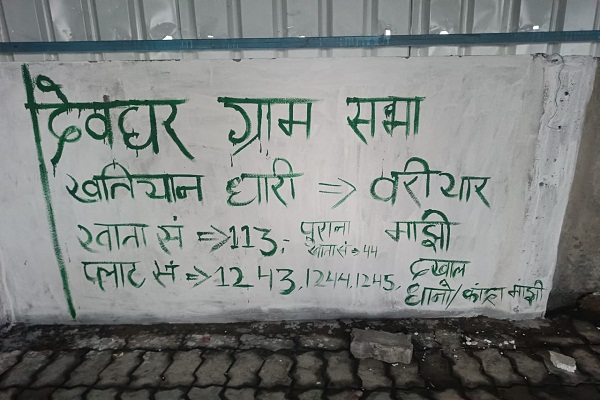 देवघर ग्राम सभा
खतियान धारी => वरीयार
खाता सं => 113, पुराना खाता सं => 44 माझी
प्लाट सं => 1243, 1244, 1245, दखल
धानो/ कांद्रा माझी